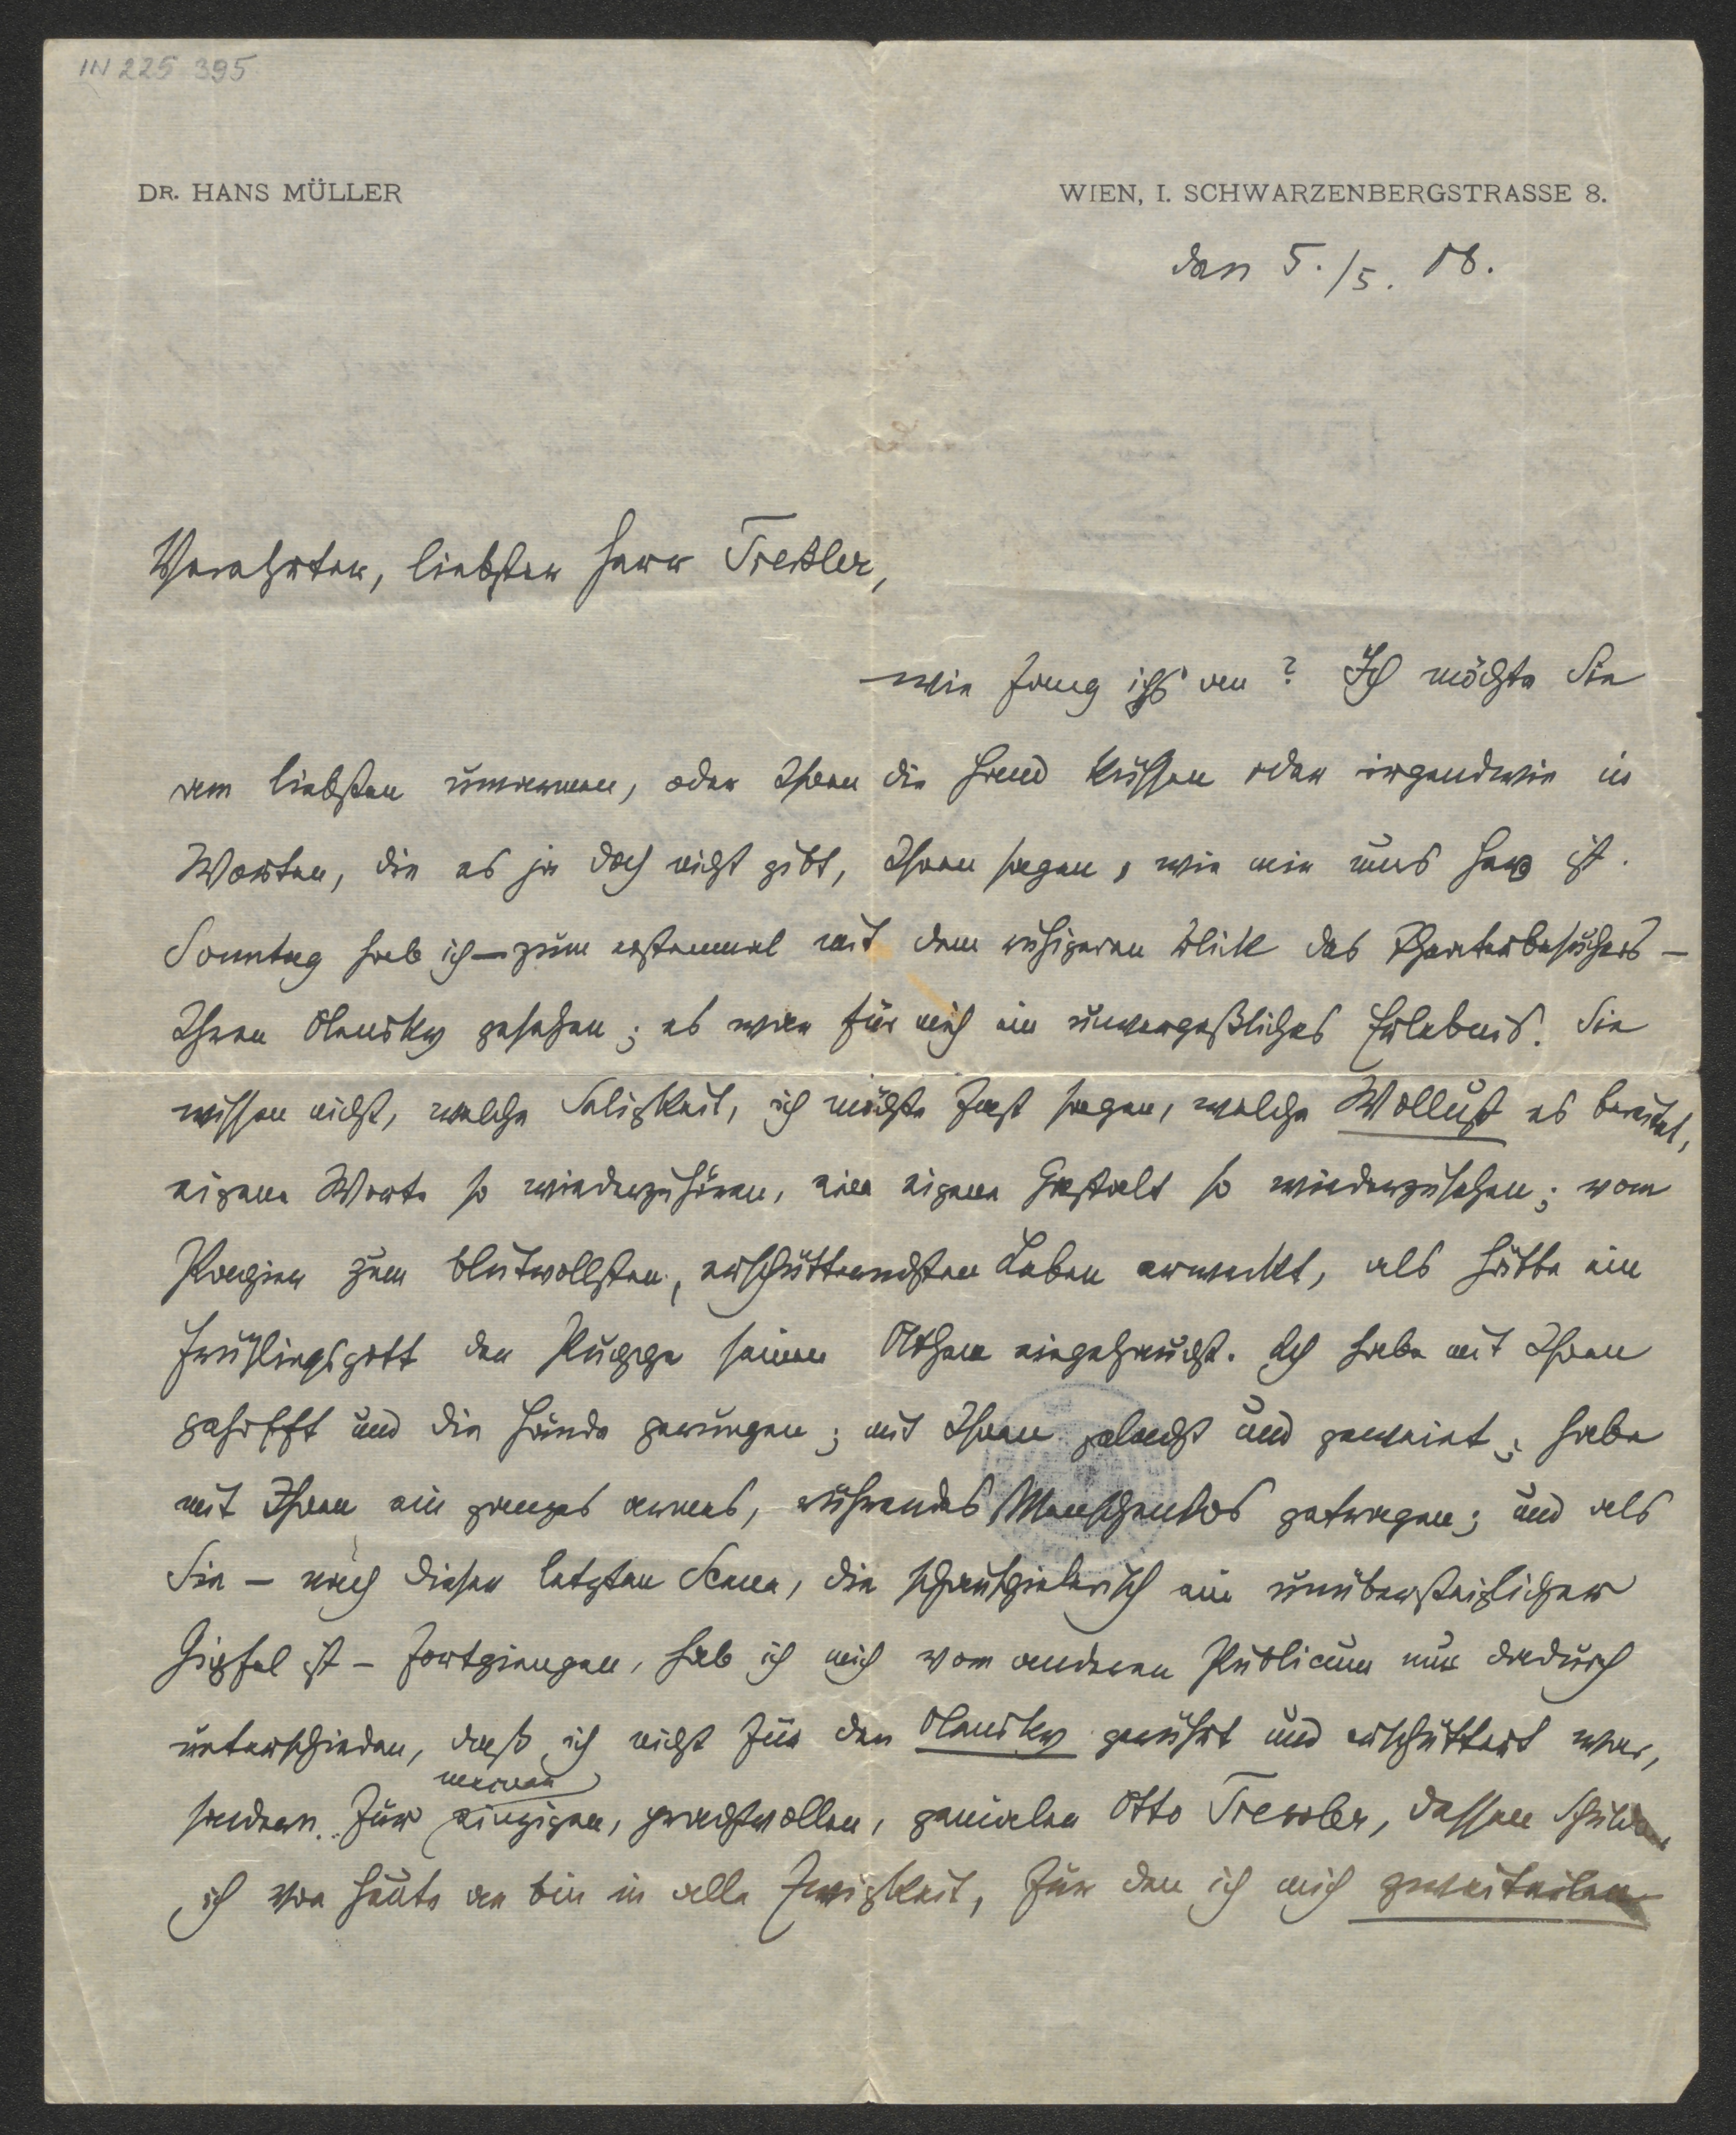 IN 225 395
DR. HANS MÜLLER
WIEN, I. SCHWARZENBERGSTRASSE 8.
den 5./5. 08.
Verehrter, liebster Herr Treßler,
wie fang ichs an? Ich möchte Sie
am liebsten umarmen, oder Ihnen die Hand küssen oder irgendwie in
Worten, die es ja doch nicht gibt, Ihnen sagen, wie mir ums Herz ist.
Sonntag hab ich – zum erstenmal mit dem ruhigeren Blick des Theaterbesuchers –
Ihren Olensky gesehen; es war für mich ein unvergeßliches Erlebnis. Sie
wissen nicht, welche Seligkeit, ich möchte fast sagen, welche Wollust es bereitet,
eigene Worte so wiederzuhören, eine eigene Gestalt so wiederzusehen; vom
Papier zum blutvollsten, erschütterndsten Leben erweckt, als hätte ein
Frühlingsgott der Puppe seinen Athem eingehaucht. Ich habe mit Ihnen
gehofft und die Hände gerungen; mit Ihnen gelacht und geweint; habe
mit Ihnen ein ganzes armes, rührendes Menschenlos getragen; und als
Sie – nach dieser letzten Scene, die schauspielerisch ein unübersteiglicher
Gipfel ist – fortgiengen, hab ich mich vom anderen Publicum nur dadurch
unterschieden, daß ich nicht für den Olensky gerührt und erschüttert war,
sondern für meinen einzigen, prachtvollen, genialen Otto Tressler, dessen Schuldner
ich von heute an bin in alle Ewigkeit, für den ich mich zweiteilen